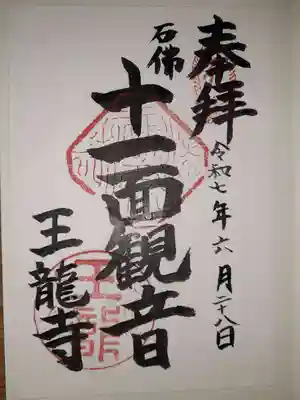 奉拝
令和七年六月二十八日
石佛
十一面観音
王龍寺